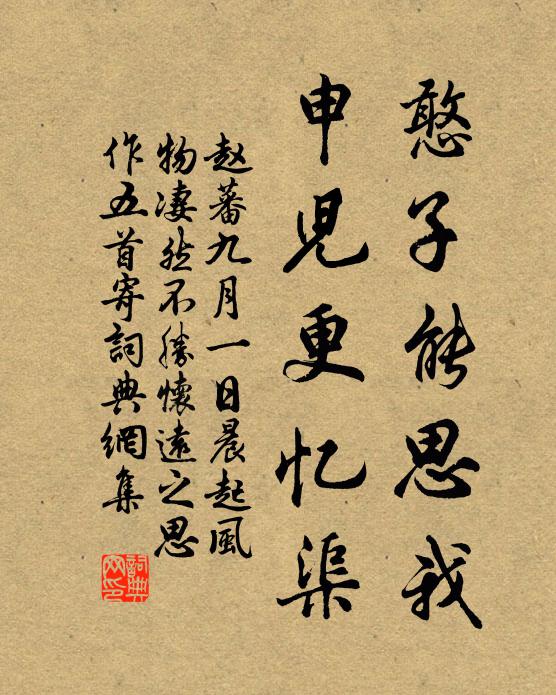 憨子能思我
申児更忆渠
赵蕃九月一日晨起風
物凄然不勝懷遠之思
作五首寄詞典網集
詞典网印